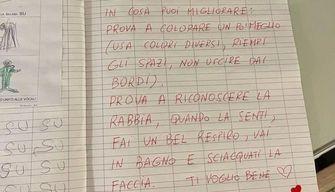 IN COSA PUOI MIGLIORARE:
PROVA A COLORARE UN PO' MEGLIO
(USA COLORI DIVERSI, RIEMPI
GLI SPAZI, NON USCIRE DAI
BORDI).
PROVA A RICONOSCERE LA
RABBIA, QUANDO LA SENTI,
FAI UN BEL RESPIRO, VAI
IN BAGNO E SCIACQUATI LA
FACCIA. TI VOGLIO BENE
SU
SU SU
SU SU
SU SU
SU SU